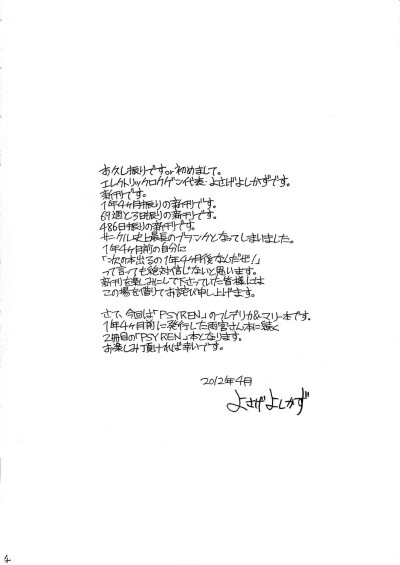 お久し振りですor初めまして。
エレクトリックロクゲン代表・よさげよしかずです。
新刊です。
1年4ヶ月振りの新刊です。
69週と3日振りの新刊です。
486日振りの新刊です。
サークル史上最長のブランクとなってしまいました。
1年4ヶ月前の自分に
「次の本出るの1年4ヶ月後なんだぜ!」
って言っても絶対信じないと思います。
新刊を楽しみにして下さっていた皆様には
この場を借りてお詫び申し上げます。
さて、今回は「PSYREN」のフレデリカ&マリー本です。
1年4ヶ月前に発行した雨宮さん本に続く
2冊目の「PSYREN」本となります。
お楽しみ頂ければ幸いです。
2012年4月
よさげよしかず
4